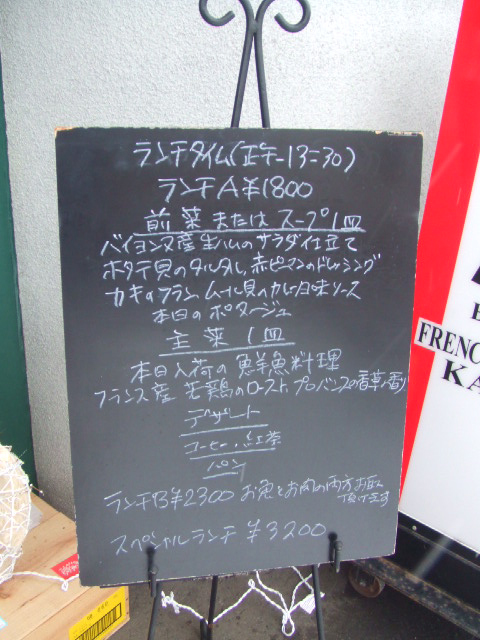 ランチタイム(正午-13=30)
ランチA ¥1800
前菜またはスープ1皿
バイヨンヌ産生ハムのサラダ仕立て
ホタテ貝のタルタル,赤ピーマンのドレッシング
カキのフラン,ムール貝のカレー風味ソース
本日のポタージュ
主菜1皿
本日入荷の鮮魚料理
フランス産若鶏のロースト,プロバンスの香草の香り
デザート
コーヒー,紅茶
パン
ランチB ¥2300 お魚とお肉の両方お召
頂けます
スペシャルランチ ¥3200
FRENC
KA